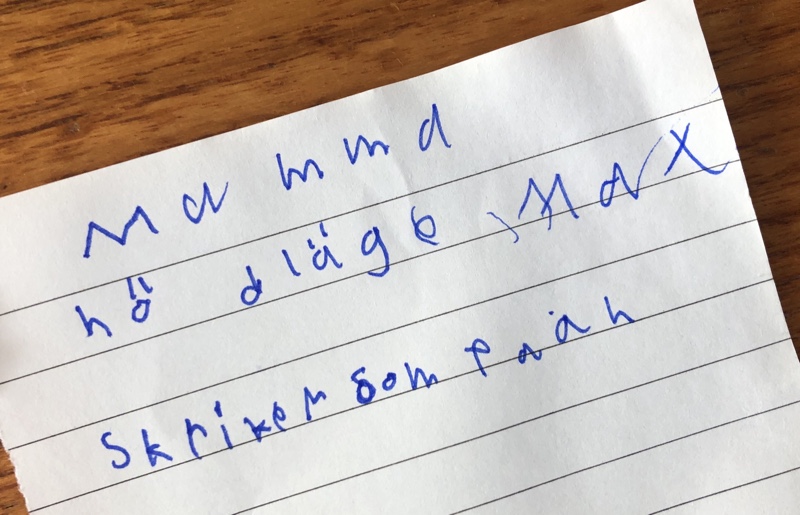 Mamma
nödläge, MAX
skriker som en än